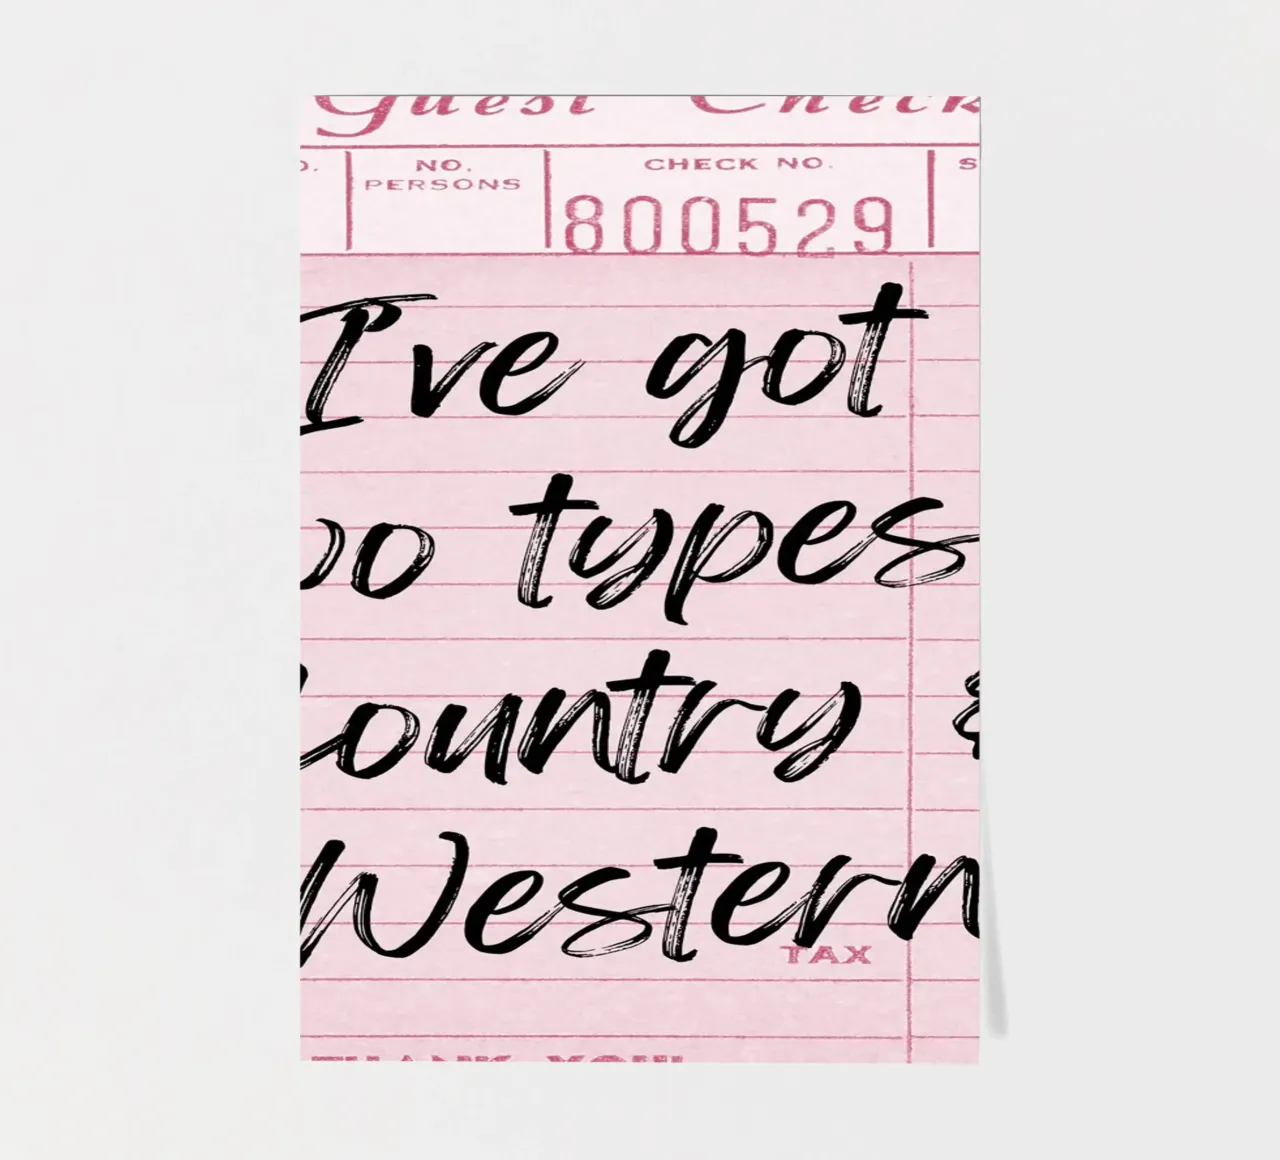 Guest Check
NO. PERSONS
CHECK NO.
800529
I've got
types
ountry &
Western
TAX
THANK YOU!